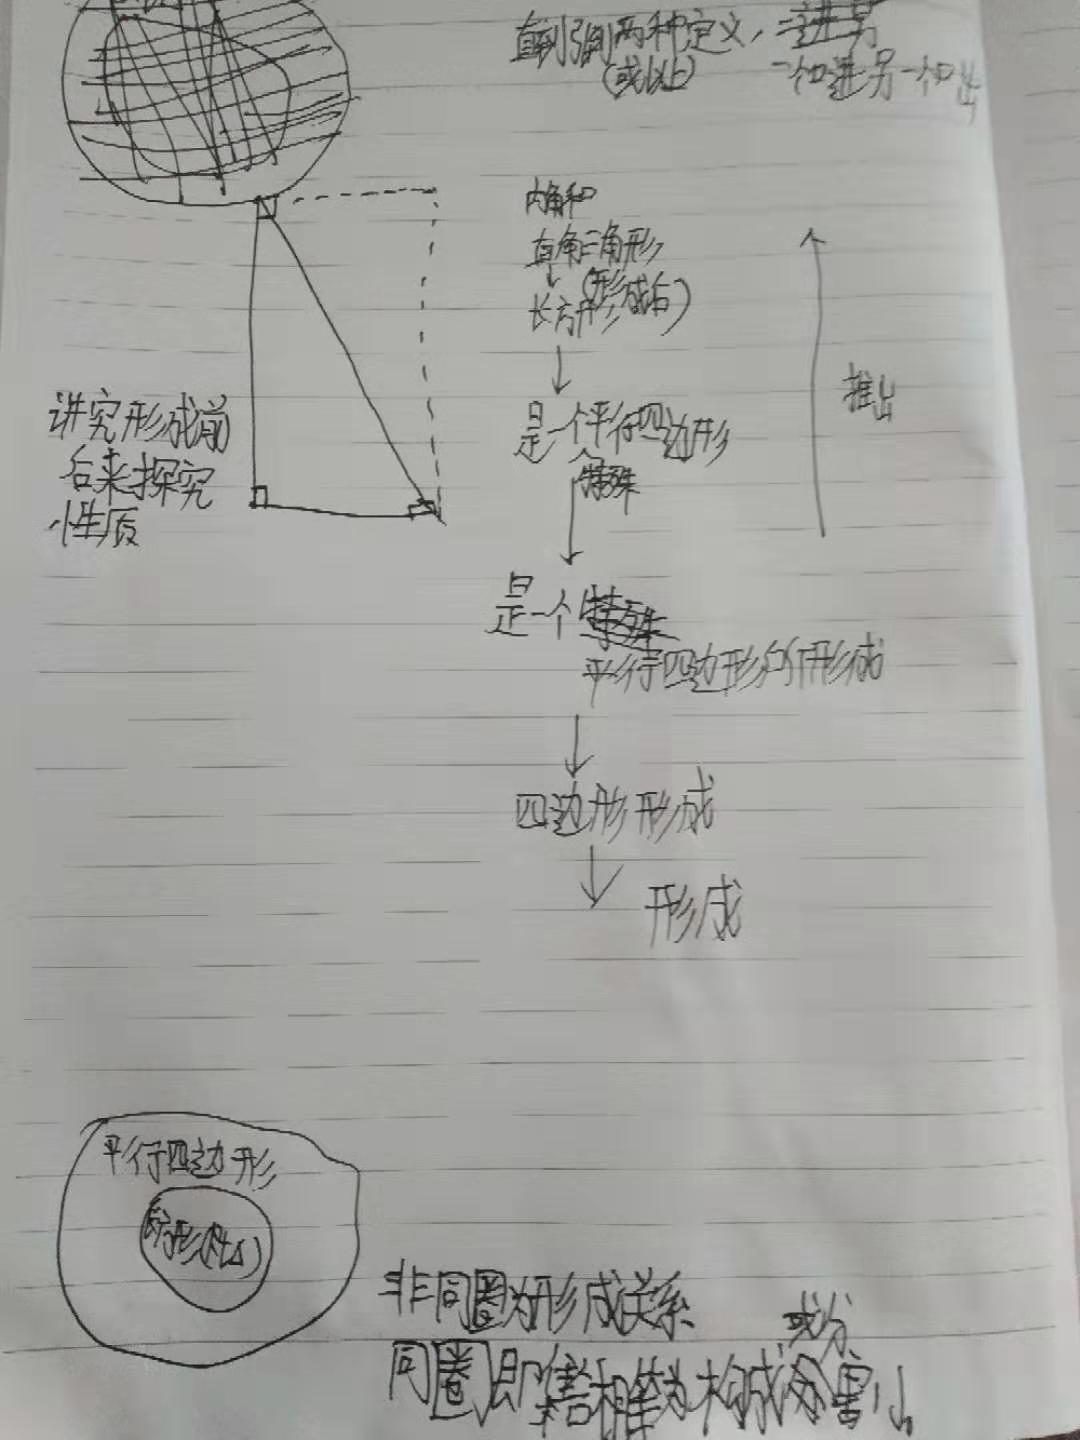 两种定义，
(或以上)
一个进另一个出
内角和
直角三角形
(形成后)
长方形
是一个平行四边形
特殊
推出
讲究形成前
后来探究
性质
是一个特殊
平行四边形所形成
四边形形成
形成
平行四边形
(Rt△)
非同圈为形成关系
或分
同圈即集合相等为构成